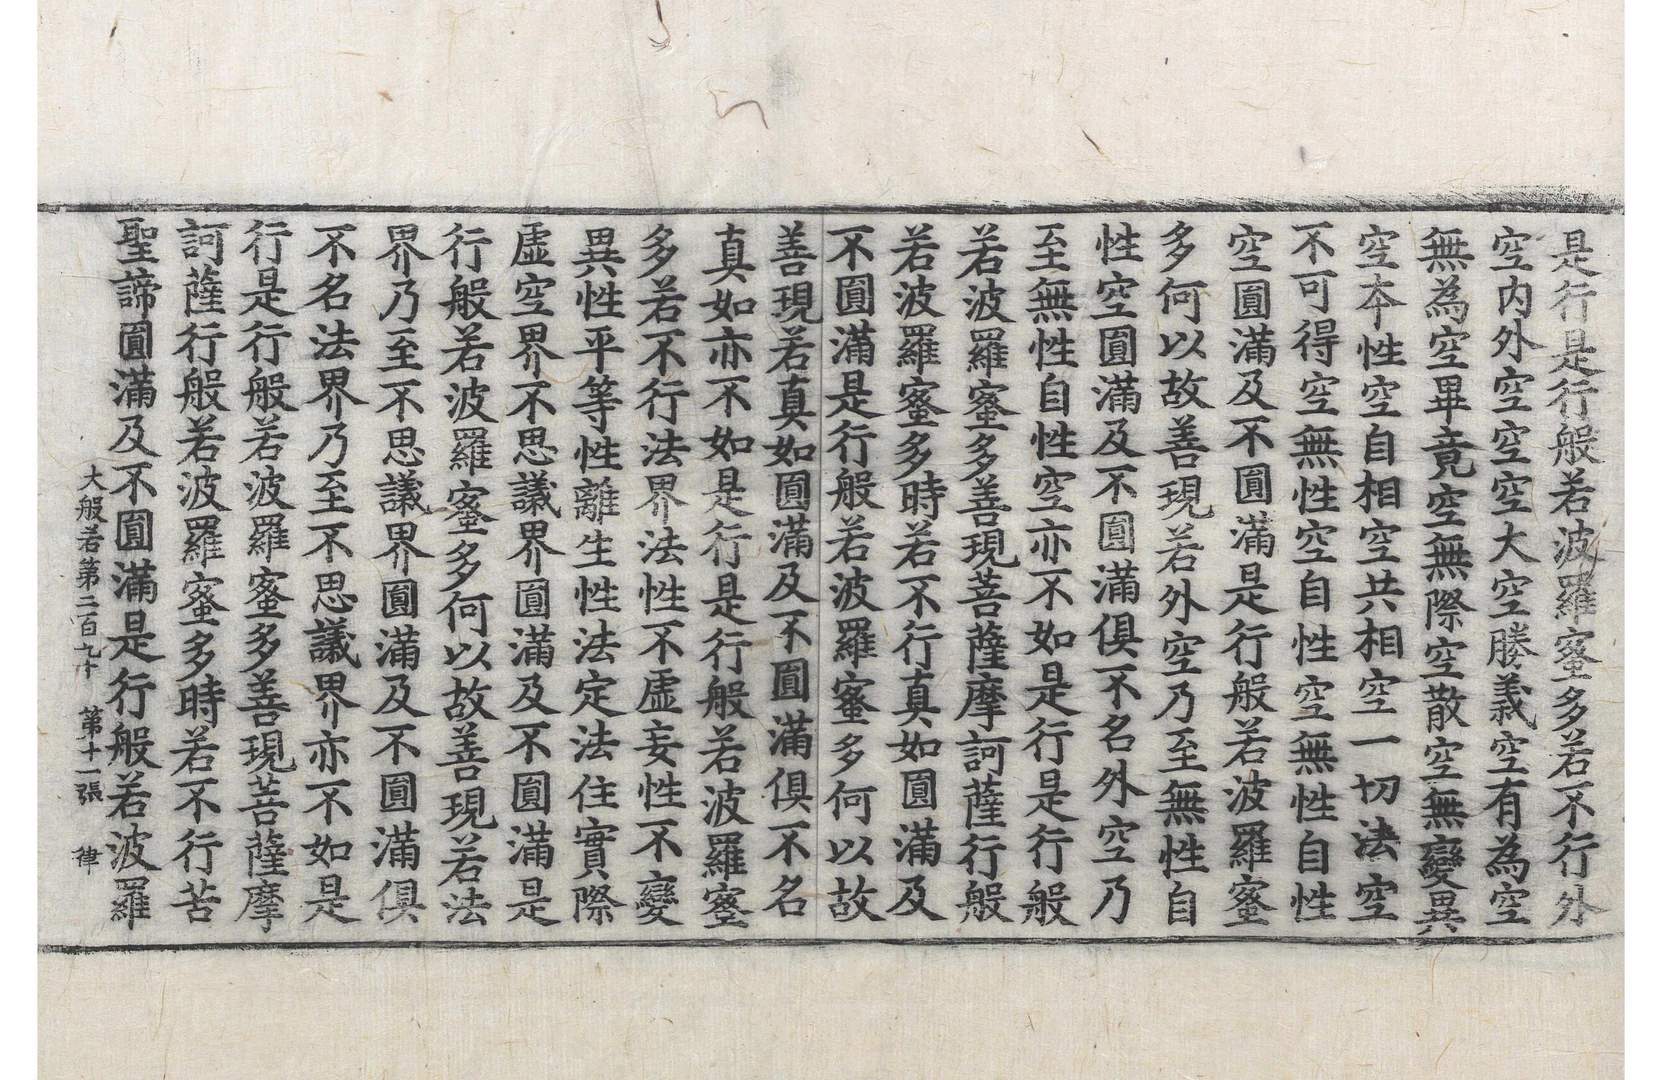 是行是行般若波羅蜜多若不行外
空内外空空空大空勝義空有為空
無為空畢竟空無際空散空無變異
空本性空自相空共相空一切法空
不可得空無性空自性空無性自性
空圓滿及不圓滿是行般若波羅蜜
多何以故善現若外空乃至無性自
性空圓滿及不圓滿俱不名外空乃
至無性自性空亦不如是行是行般
若波羅蜜多善現菩薩摩訶薩行般
若波羅蜜多時若不行真如圓滿及
不圓滿是行般若波羅蜜多何以故
善現若真如圓滿及不圓滿俱不名
真如亦不如是行是行般若波羅蜜
多若不行法界法性不虛妄性不變
異性平等性離生性法定法住實際
虛空界不思議界不圓滿及不圓滿是
行般若波羅蜜多何以故善現若法
界乃至不思議界圓滿及不圓滿俱
不名法界乃至不思議界亦不如是
行是行般若波羅蜜多善現菩薩摩
訶薩行般若波羅蜜多時若不行苦
聖諦圓滿及不圓滿是行般若波羅
大般若第二百九十 第十一張 律